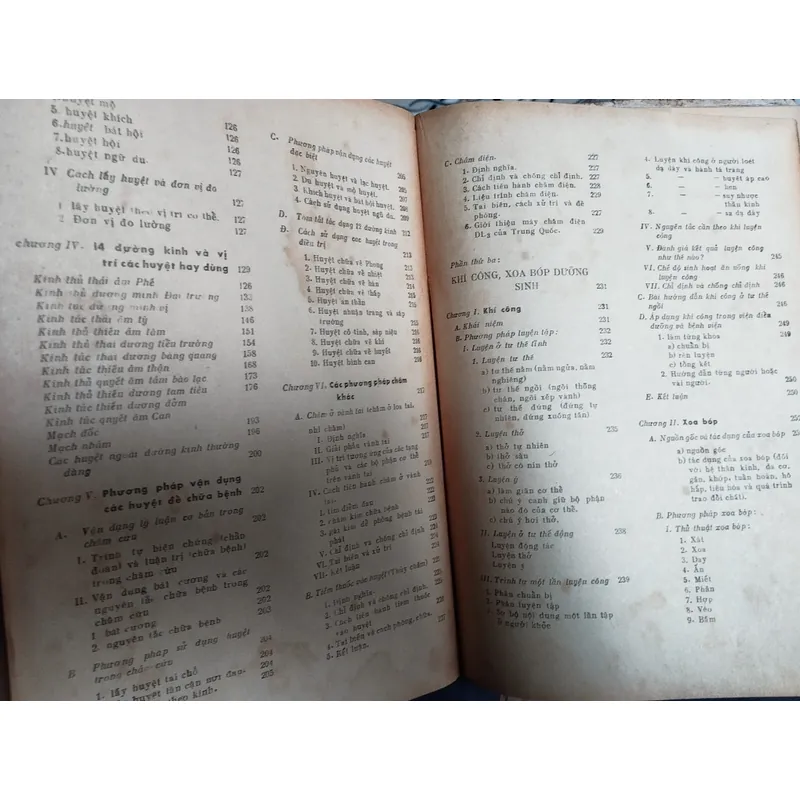 huyệt mộ
5. huyệt khích 126
6. huyệt bát hội 126
7. huyệt hội 126
8. huyệt ngũ du 126
127
IV Cách lấy huyệt và đơn vị đo
lường 127
1 lấy huyệt theo vị trí cơ thể. 127
2 Đơn vị đo lường 127
chương IV. 14 đường kinh và vị
trí các huyệt hay dùng 129
Kinh thủ thái âm Phế 126
Kinh thủ dương minh Đại trường 132
Kinh túc dương minh vị 138
Kinh túc thái âm tỳ 146
Kinh thủ thiếu âm tâm 151
Kinh thủ thái dương tiểu trường 154
Kinh túc thái dương bàng quang 158
Kinh túc thiếu âm thận 168
Kinh thủ quyết âm tâm bào lạc 173
Kinh thủ thiếu dương tam tiêu 176
Kinh túc thiếu dương đởm
Kinh túc quyết âm Can
Mạch đốc 193
Mạch nhâm 196
Các huyệt ngoài đường kinh thường
dùng 200
Chương V. Phương pháp vận dụng
các huyệt để chữa bệnh 202
A- Vận dụng lý luận cơ bản trong
châm cứu 202
I. Trình tự biện chứng (chẩn
đoán) và luận trị (chữa bệnh)
trong châm cứu 202
II. Vận dụng bát cương và các
nguyên tắc chữa bệnh trong
châm cứu 202
1 bát cương 202
2. nguyên tắc chữa bệnh 203
B Phương pháp sử dụng huyệt
trong châm cứu 204
1. lấy huyệt tại chỗ 204
huyệt lân cận nơi đau. 204
theo kinh. 205
C. Phương pháp vận dụng các huyệt
đặc biệt 206
1. Nguyên huyệt và lạc huyệt. 206
2. Du huyệt và mộ huyệt. 208
3. Khích huyệt và bát hội huyệt. 208
4. Cách sử dụng huyệt ngũ du. 209
D. Tóm tắt tác dụng 12 đường kinh 212
Đ. Cách sử dụng các huyệt trong
điều trị 213
1. Huyệt chữa về Phong
2. Huyệt chữa về nhiệt
3. Huyệt chữa về hàn
4. Huyệt chữa về thấp
5. Huyệt an thần
6. Huyệt nhuận tràng và sáp
trường
7. Huyệt cố tinh, sáp niệu
8. Huyệt chữa về khí
9. Huyệt chữa về huyết
10. Huyệt hình can 216
Chương VI. Các phương pháp châm
khác 217
A. Châm ở vành tai (châm ở loa tai,
nhĩ châm) 217
I. Định nghĩa 217
II. Giải phẫu vành tai 217
III. Vị trí tương ứng của các tạng
phủ và các bộ phận cơ thể
trên vành tai
IV. Cách tiến hành châm ở vành
tai
1. tìm điểm đau
2. châm kim chữa bệnh
3. gài kim để phòng bệnh tái
phát
V. Chỉ định và chống chỉ định
VI. Tai biến và xử trí
VII. Kết luận
B. Tiêm thuốc vào huyệt (Thủy châm)
1. Định nghĩa.
2. Chỉ định và chống chỉ định.
3. Cách tiến hành tiêm thuốc
vào huyệt
4. Tai biến và cách phòng, chữa.
5. Kết luận. 227
C. Châm điện. 227
1. Định nghĩa. 227
2. Chỉ định và chống chỉ định. 227
3. Cách tiến hành châm điện. 228
4. Liệu trình châm điện. 229
5. Tai biến, cách xử trí và đề
phòng. 229
6. Giới thiệu máy châm điện
của Trung Quốc. 229
Phần thứ ba:
KHÍ CÔNG, XOA BÓP DƯỠNG
SINH 231
Chương I. Khí công 231
A. Khái niệm 231
B. Phương pháp luyện tập: 232
I- Luyện ở tư thế tĩnh 232
1. Luyện tư thế 232
a) tư thế nằm (nằm ngửa, nằm
nghiêng)
b) tư thế ngồi (ngồi thõng
chân, ngồi xếp vành)
c) tư thế đứng (đứng tự
nhiên, đứng xuống tấn)
2. Luyện thở 235
a) thở tự nhiên
b) thở sâu
c) thở có nín thở
3. Luyện ý 236
a) làm giãn cơ thể
b) chú ý canh giữ bộ phận
nào đó của cơ thể.
c) chú ý hơi thở.
II. Luyện ở tư thế động 238
Luyện động tác
Luyện thở
Luyện ý
III. Trình tự một lần luyện công 239
1. Phần chuẩn bị
2. Phần luyện tập
3. Sơ bộ nội dung một lần tập
ở người khỏe
4. Luyện khí công ở người loét
dạ dày và hành tá tràng
5. — huyết áp cao
6. — hen
7. — suy nhược
thần kinh
8. — sa dạ dày
IV. Nguyên tắc cần theo khi luyện
công
V. Đánh giá kết quả luyện công
như thế nào? 245
VI. Chế độ sinh hoạt ăn uống khi
luyện công 246
VII. Chỉ định và chống chỉ định
C. Bài hướng dẫn khí công ở tư thế
ngồi
D. Áp dụng khí công trong viện điều
dưỡng và bệnh viện
1. làm từng khoa
a) chuẩn bị
b) rèn luyện
c) tổng kết
2. Hướng dẫn từng người hoặc
vài người. 250
E- Kết luận 250
Chương II. Xoa bóp 252
A. Nguồn gốc và tác dụng của xoa bóp
a) nguồn gốc
b) tác dụng của xoa bóp (đối
với hệ thần kinh, da cơ,
gân, khớp, tuần hoàn, hô
hấp, tiêu hóa và quá trình
trao đổi chất).
B. Phương pháp xoa bóp.
I. Thủ thuật xoa bóp:
1. Xát
2. Xoa
3. Day
4. Ấn
5. Miết
6. Phân
7. Hợp
8. Véo
9. Bấm